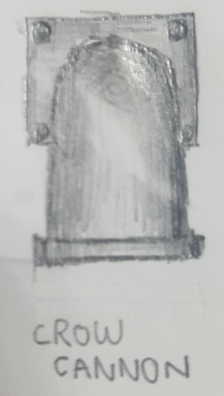 CROW
CANNON